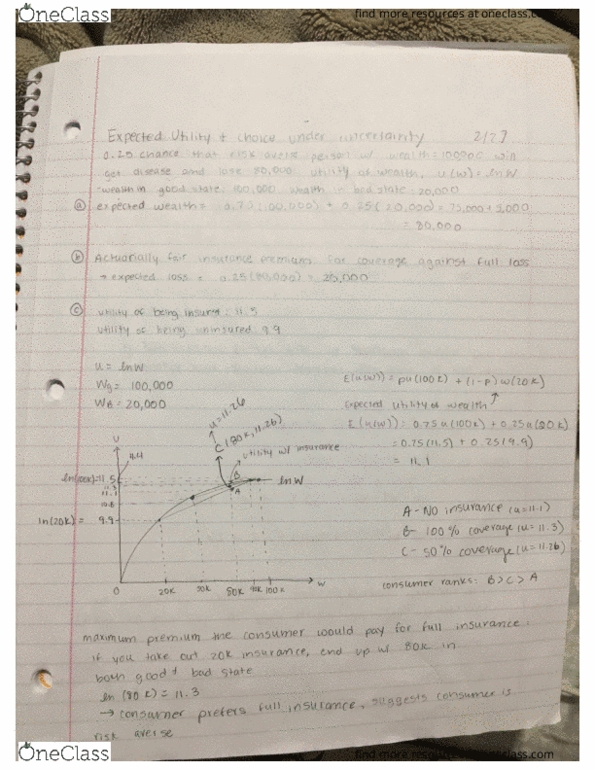 OneClass
find more resources at oneclass.com
Expected Utility + choice under uncertainty 2/27
0.25 chance that risk averse person w/ wealth=100000 will
get disease and lose 80,000 utility of wealth, u(w)=lnW
wealth in good state: 100,000 wealth in bad state: 20,000
(a) expected wealth= 0.75(100,000) + 0.25(20,000)= 75,000+5,000
= 80,000
(b) Actuarially fair insurance premium for coverage against full loss
→ expected loss = 0.25(80,000) = 20,000
(c) utility of being insured: 11.5
utility of being uninsured 9.9
u= lnW
Wg= 100,000
WB= 20,000
E(u(w))= pu(100k) + (1-p)w(20k)
expected utility of wealth
E(u(w)): 0.75u(100k) + 0.25u(20k)
= 0.75(11.5) + 0.25(9.9)
= 11.1
u=11.26
C(80k,11.26)
utility w/ insurance
U
4.4
ln(100k)=11.5
11.3
11.1
ln(20k)= 9.9
B
A
lnW
0 20k 80k 90k 100k W
A-No insurance (u=11.1)
B- 100% coverage (u=11.3)
C- 50% coverage (u=11.26)
consumer ranks: B>C>A
maximum premium the consumer would pay for full insurance:
if you take out 20k insurance, end up w/ 80k in
both good + bad state
ln(80k)=11.3
→ consumer prefers full insurance, suggests consumer is
risk averse
OneClass
find more resources at oneclass.com